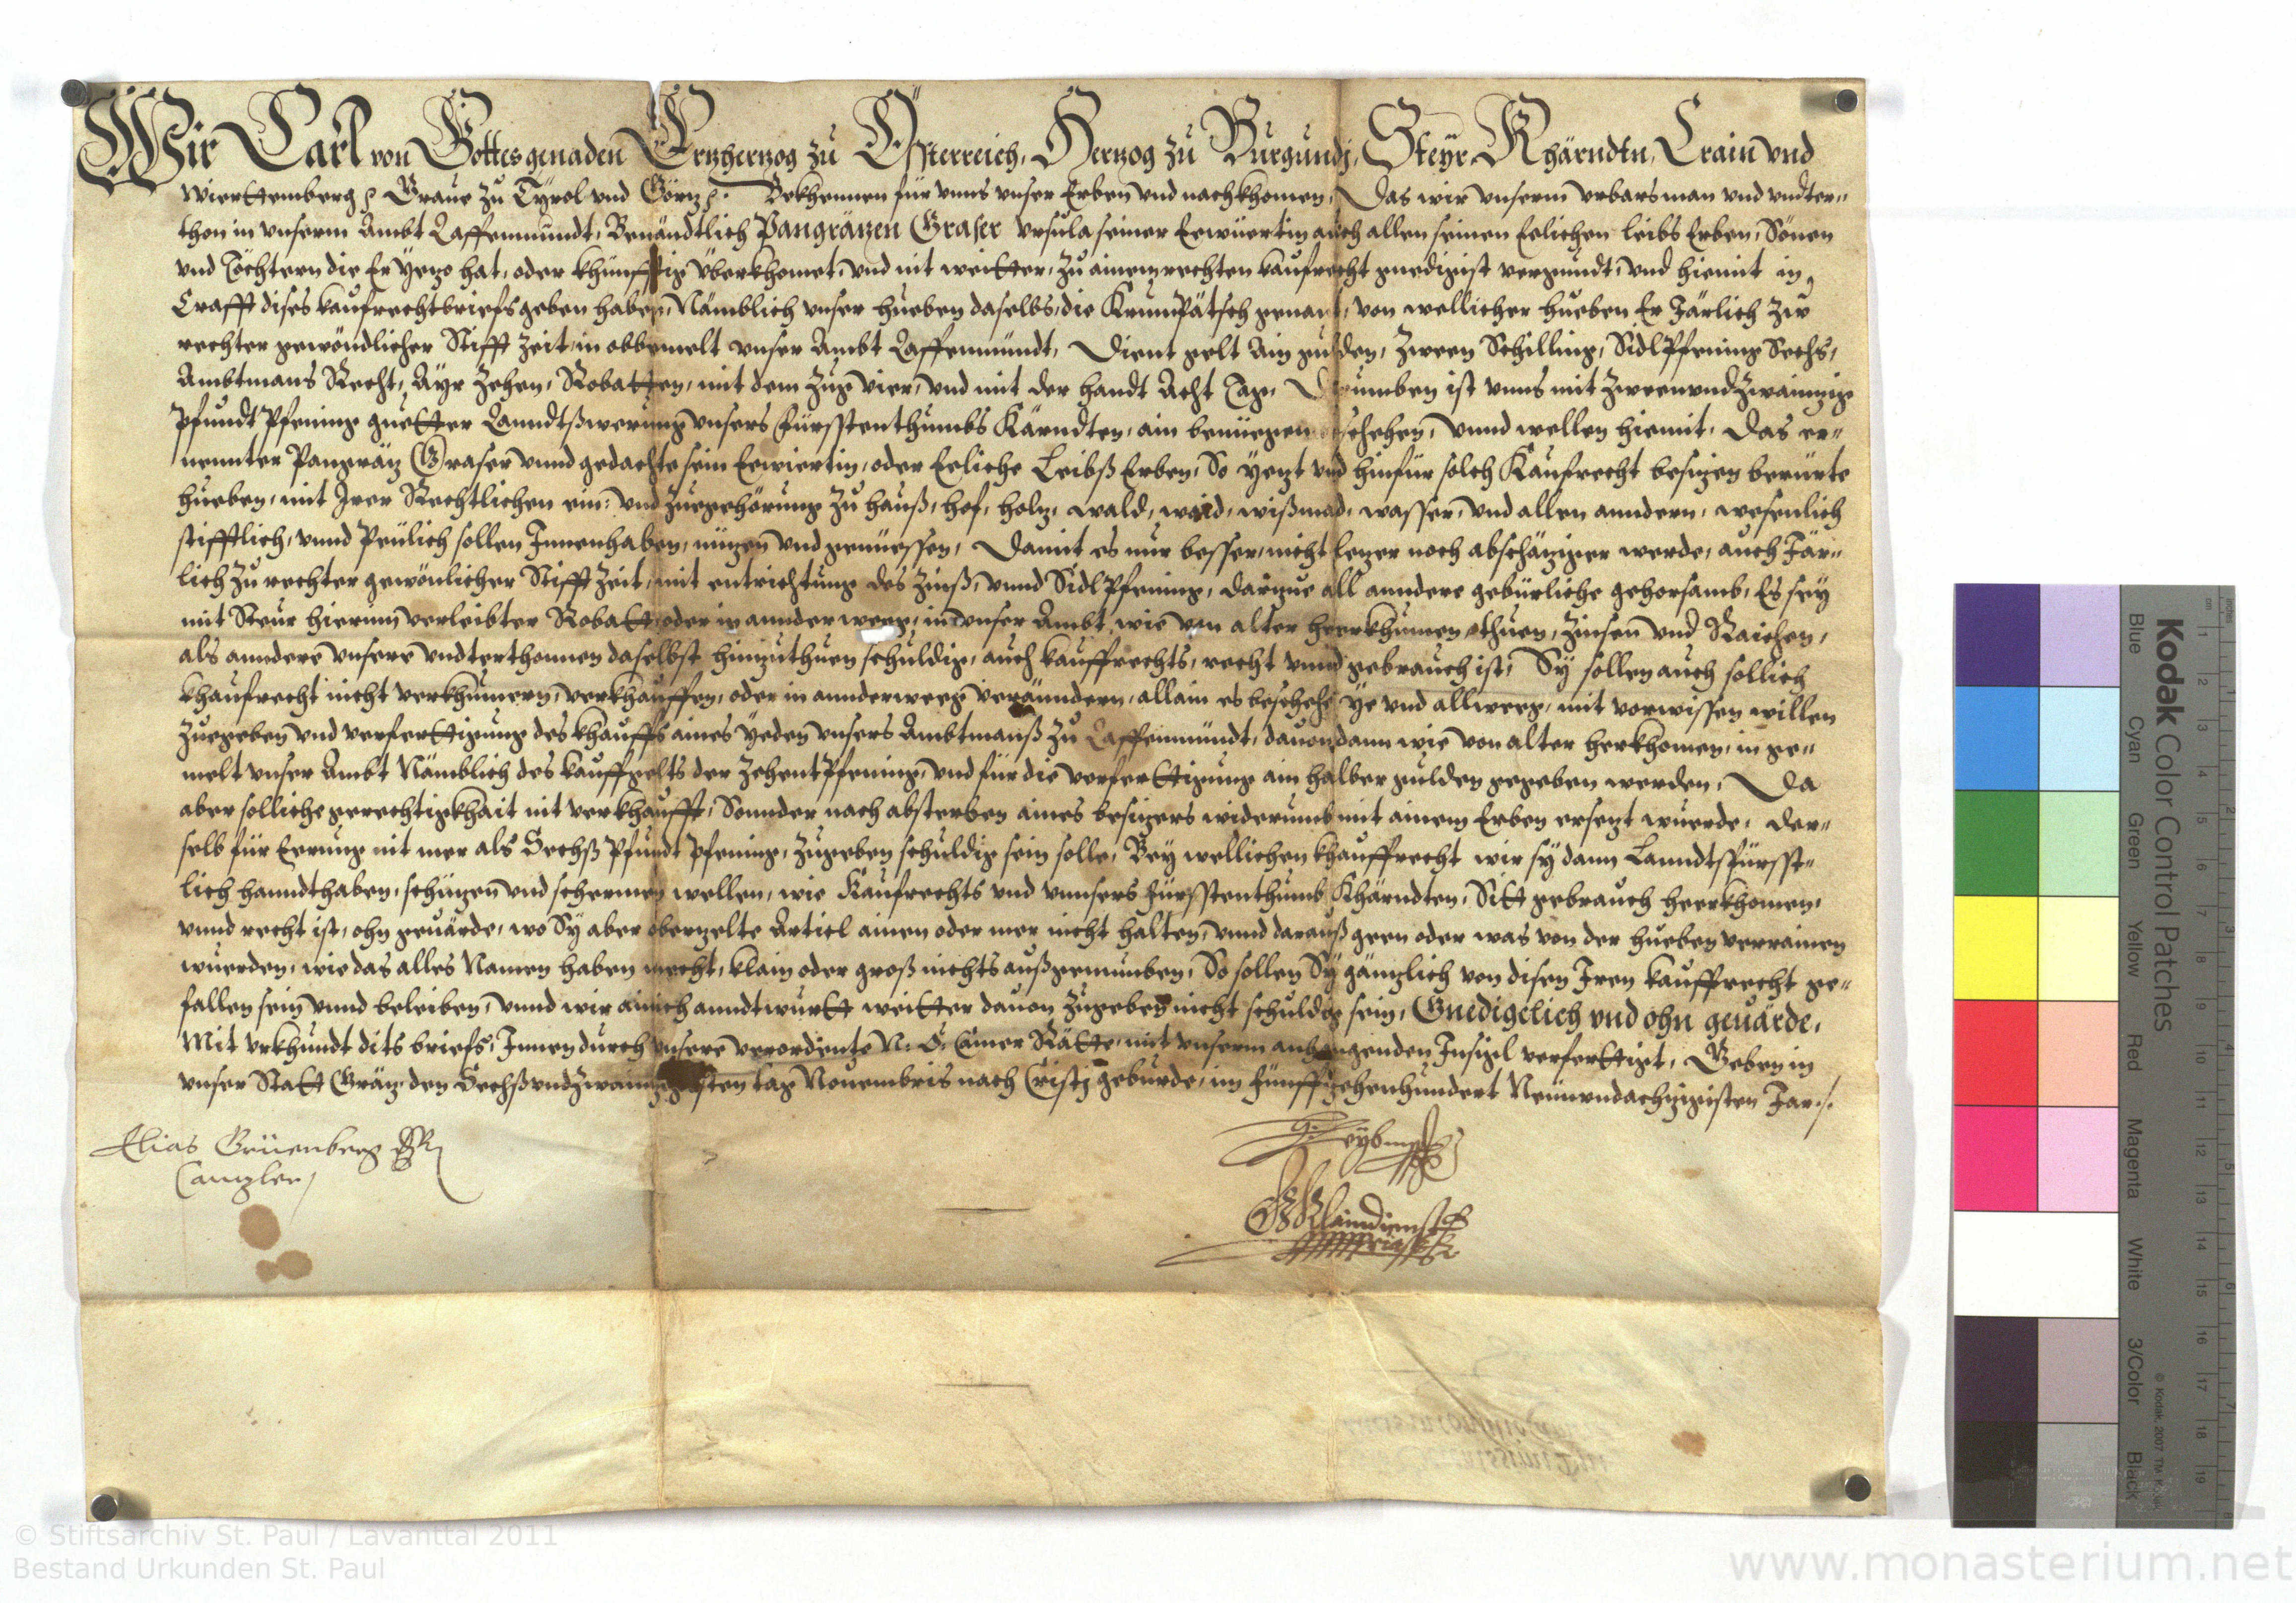 Wir Carl von Gottes genaden Ertzherzog zu Össterreich, Hertzog zu Burgundj, Steyr, Khärndtn, Crain vnd
Wierttemberg Graue zu Tyrol vnd Görtz. Bekhennen für vnns vnser Erben vnd nachkhomen, Das wir vnserm vrbarsman vnd vndter-
thon in vnserm Ambt Laffenmundt, Benändtlich Pangräzen Graser vrsula seiner Eewüertin auch allen seinen Eelichen leibs Erben, Sönen
vnd Töchtern die Er yezo hat, oder khünfftig überkhomet, vnd nit weitter, zu ainem rechten kaufrecht gnedigist vergundt, vnd hiemit in
Crafft dises kaufrechtbriefs geben haben, Nämblich vnser hueben daselbs, die Krumpätsch genant, von wellicher hueben Er Järlich zu
rechter gewöndlicher Stifft zeit, in obbemelt vnser Ambt Laffenmundt, Dient gelt Ain gulden, zween Schilling, Sidlpfening Sechs,
Ambtmans Recht, Ayr zehen, Robatten, mit dem zug vier, vnd mit der handt Acht Tag, Darumben ist vnns mit zwenundzwainzig
Pfundt Pfening guetter Lanndtßwerung vnsers Fürsstenthumbs Kärndten, ain benüegen geschehen, vnnd wellen hiemit, Das er-
nennter Pangräz Graser vnnd gedachte sein Eewiertin, oder Eeliche Leibß Erben, So yezt vnd hinfür solch Kaufrecht besizen berürte
hueben, mit Irer Rechtlichen ein: vnd zuegehörung zu hauß, hof, holz, wald, waid, wißmad, wasser, vnd allen anndern, wesenlich
stifftlich, vnnd Peülich sollen Innenhaben, nüzen vnd genüessen, Damit es nur besser, nicht lezer noch abschäziger werde, auch Jär-
lich zu rechter gewönlicher Stifft zeit, mit entrichtung des zinß, vnnd Sidlpfening, darzue all anndere gebürliche gehorsamb, Es sey
mit Steur hierinn verleibter Robatt, oder in annder weeg, in vnser Ambt, wie von alter heerkhumen, thuen, zinsen vnd Raichen,
als anndere vnsere vndterthonnen daselbst hinzuthuen schuldig, auch kauffrechts, recht vnnd gebrauch ist, Sy sollen auch sollich
khaufrecht nicht verkhümern, verkhauffen, oder in annderweeg verännndern, allain es beschehe ye vnd allweeg, mit vorwissen willen
zuegeben vnd verferttigung des khauffs aines yeden vnsers Ambtmanß zu Laffenmundt, dauon dann wie von alter herkhomen, in ge-
melt vnser Ambt Nämblich des kauffgelts der zehent Pfening, vnd für die verferttigung ain halber gulden gegeben werden, Da
aber solliche gerechtigkhait nit verkhaufft, Sonnder nach absterben aines besizers widerumb mit ainem Erben ersezt wuerde, der-
selb für Eerung nit mer als Sechß Pfundt Pfening, zugeben schuldig sein solle, Bey wellichen khauffrecht wir sy dann Lanndtsfürsst-
lich hanndthaben, schüzen vnd schermen wellen, wie Kaufrechts vnd vnnsers Fürsstenthumb Khärndten, Sitt gebrauch heerkhomen,
vnnd recht ist, ohn geuärde, wo Sy aber oberzelte Articl ainen oder mer nicht halten, vnnd darauß geen oder was von der hueben verrainen
wuerden, wie das alles Namen haben mecht, klain oder groß nichts außgenumben, So sollen Sy gänzlich von disen Iren kauffrecht ge-
fallen sein vnnd beleiben, vnnd wir ainich anndtwurtt weitter dauon zugeben nicht schuldig sein, Gnedigclich vnd ohn geuärde,
Mit vrkhundt dits briefs, Innen durch vnsere verordente N: Ö: Camer Räthe, mit vnserm anhangenden Insigl verferttigt, Geben in
vnser Statt Gräz den Sechßvndzwainzigisten tag Nouembris nach Cristj geburde, im Fünffzehenhundert Neünvndachzigisten Jar.
Elias Grüenberg
Canzler
Klaindienst
© Stiftsarchiv St. Paul / Lavanttal 2011
Bestand Urkunden St. Paul
www.monasterium.net
Kodak Color Control Patches
© Kodak, 2007 TM: Kodak
Blue Cyan Green Yellow Red Magenta White 3/Color Black
inches 1 2 3 4 5 6 7
cm 1 2 3 4 5 6 7 8 9 10 11 12 13 14 15 16 17 18 19